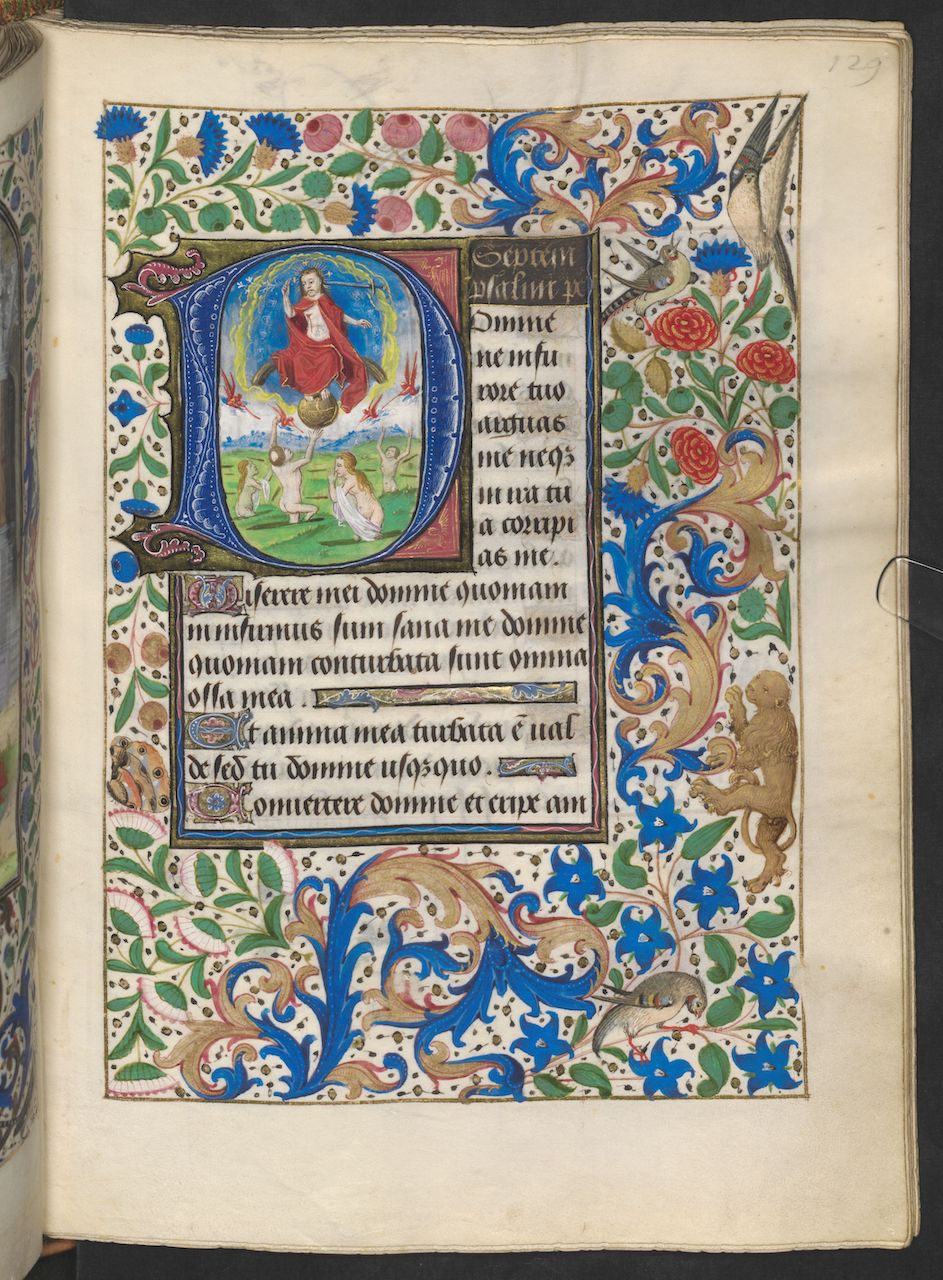 129
Septem
psalmi pe
Domine
ne in fu
rore tuo
arguas
me neqȝ
in ira tu
a corripi
as me.
Miserere mei domine quoniam
in infirmus sum sana me domine
quoniam conturbata sunt omnia
ossa mea.
Et anima mea turbata ē ual
de sed tu domine usqȝ quo.
Conuertere domine et eripe am